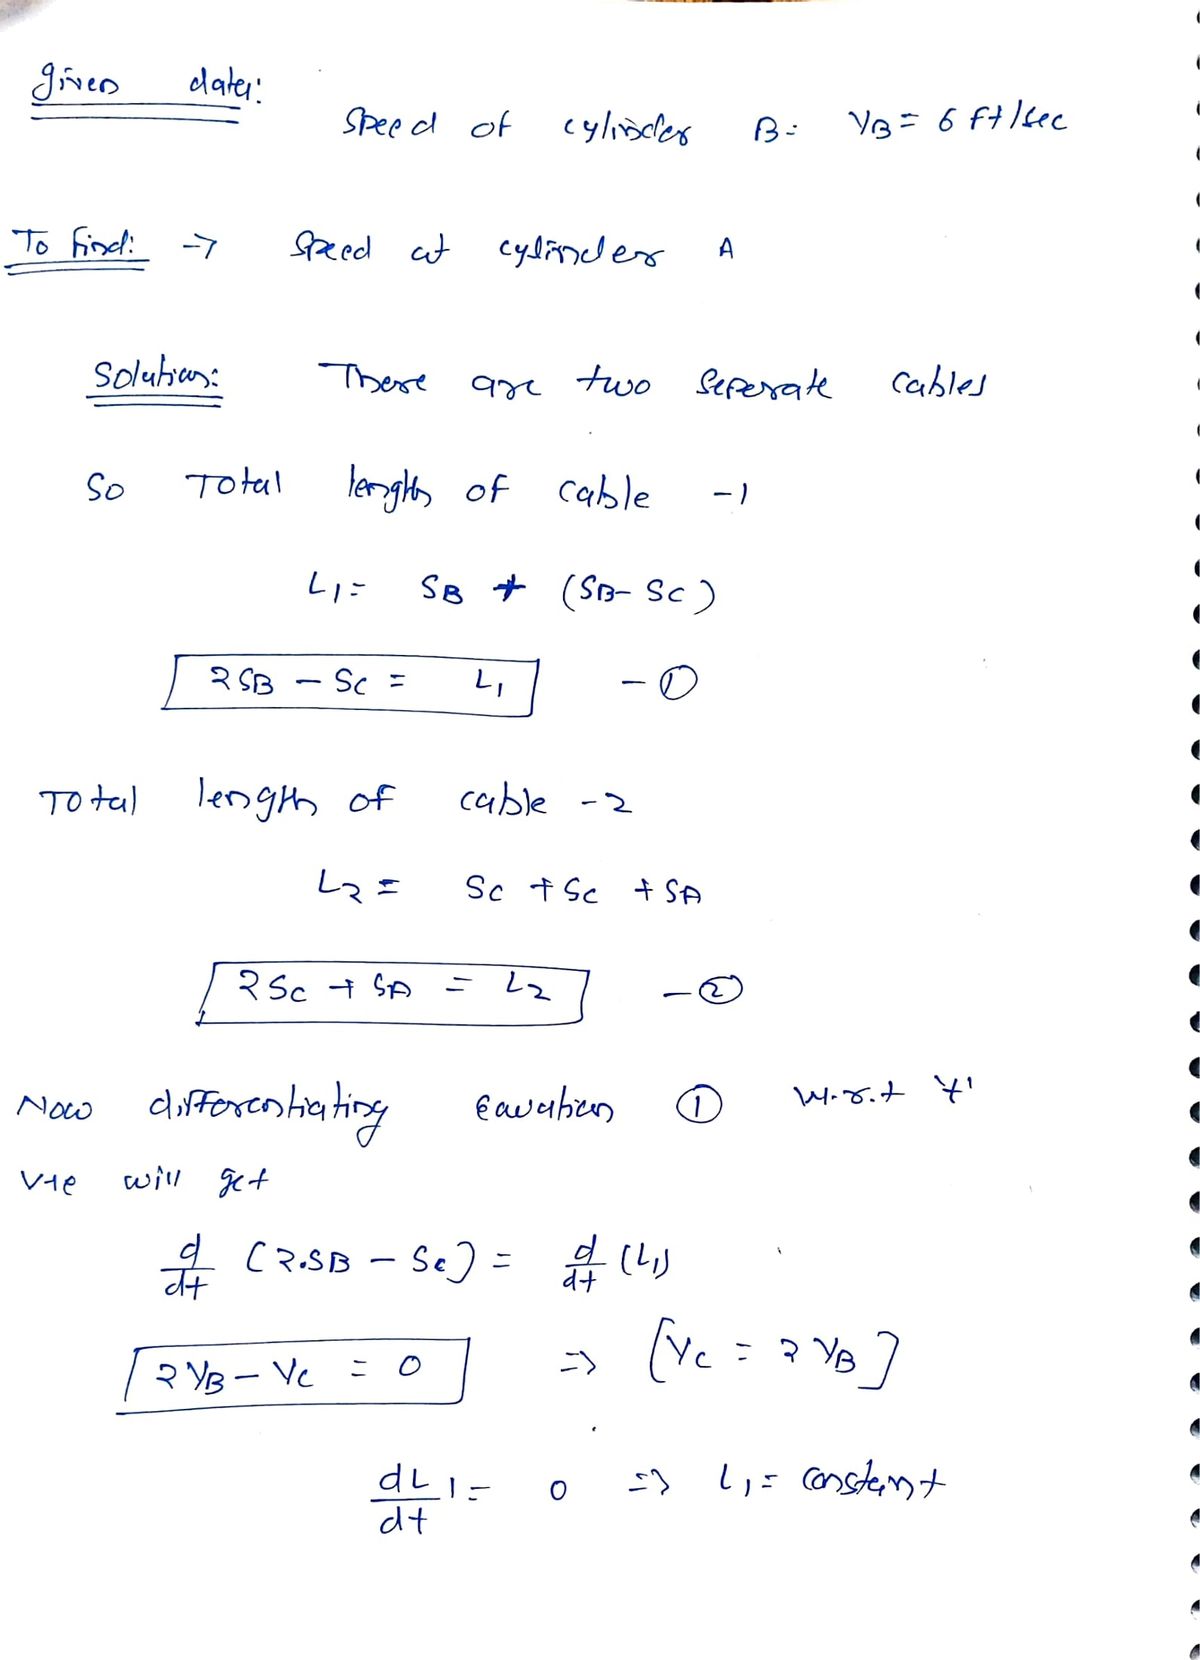 given data:
Speed of cylinder B = VB = 6 ft/sec
To find: → Speed at cylinder A
Solution: There are two seperate cables
So Total length of cable -1
L1 = SB + (SB - SC)
2SB - SC = L1 - ①
Total length of cable -2
L2 = SC + SC + SA
2SC + SA = L2 - ②
Now differentiating Equation ① w.r.t 't'
We will get
d/dt (2.SB - SC) = d/dt (L1)
2VB - VC = 0 => [VC = 2VB]
dL1/dt = 0 => L1 = constant